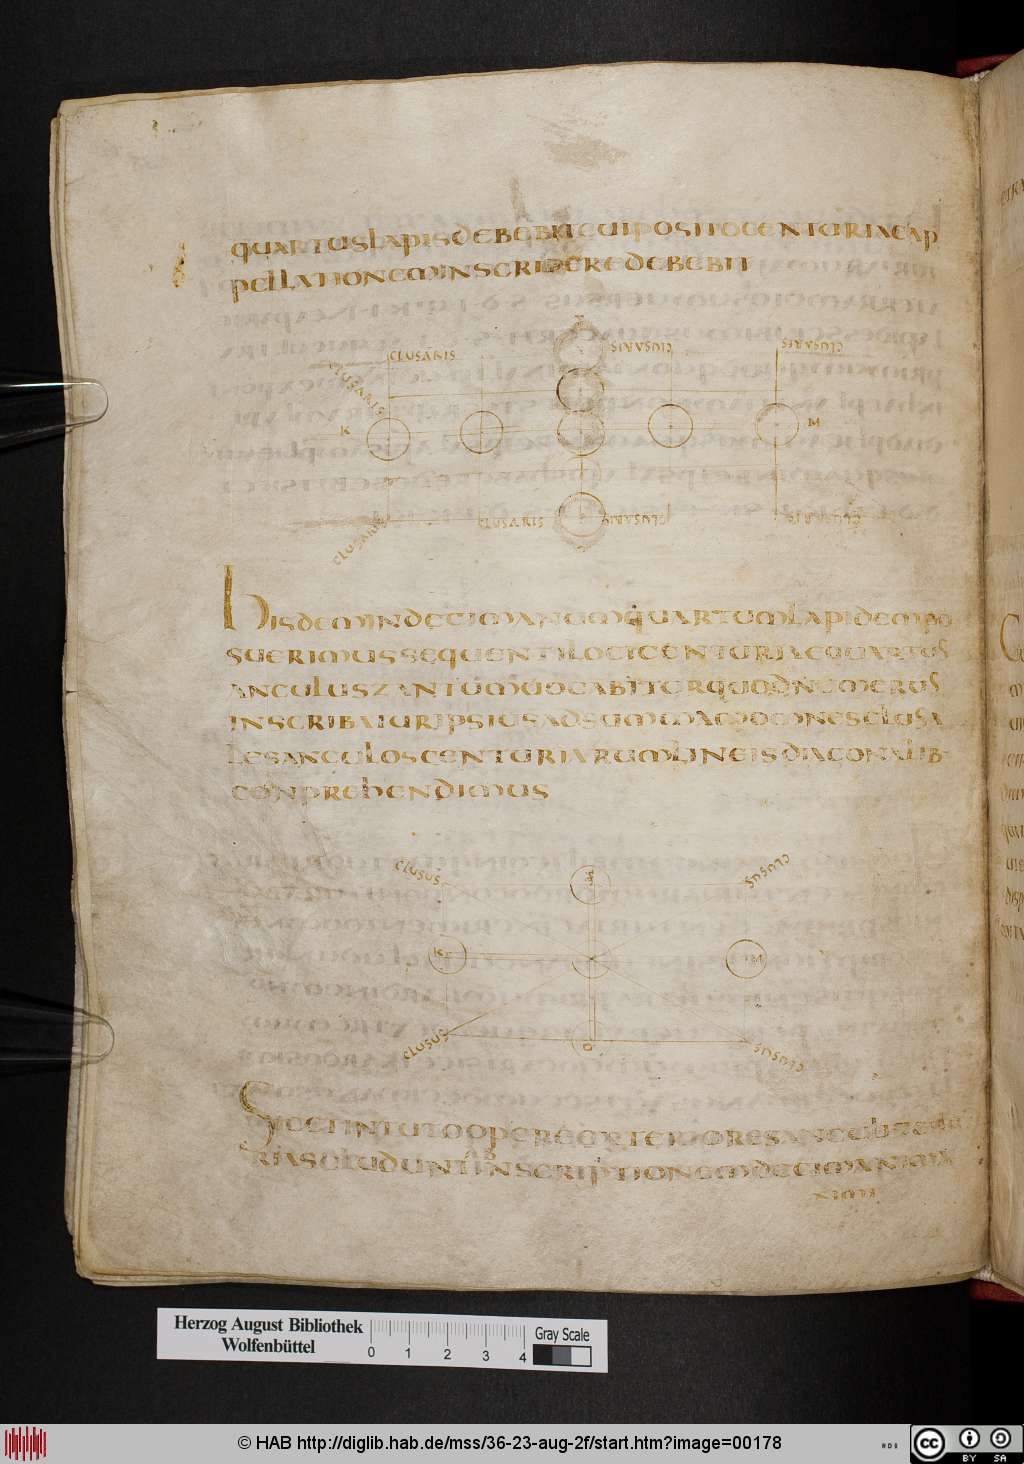 QUARTUSLAPISDEBEBITCUIPOSITOCENTURIAEAP
PELLATIONEMINSCRIBEREDEBEBIT
CLUSARIS
CLUSARIS
CLUSARIS
CLUSARIS
K
M
CLUSARIS
CLUSARIS
CLUSARIS
CLUSARIS
HISDEMINDECIMANUMQUARTUMLAPIDEMPO
SUERIMUSSEQUENTILOCICENTURIAEQUARTUS
ANCULUSTANTUMUOCABITURQUODNUMERUS
INSCRIBATURIPSIUSADSUMMAMOMNESCLUSA
LESANCULOSCENTURIARUMLINEISDIACONALIB·
CONPREHENDIMUS
CLUSUS
CLUSUS
K
M
CLUSUS
CLUSUS
SICETINTUTOOPEREEXTERIORESANCULI
RIASCLUDUNTINSCRIPTIONEMDECIMANI
Herzog August Bibliothek
Wolfenbüttel
0 1 2 3 4
Gray Scale
© HAB http://diglib.hab.de/mss/36-23-aug-2f/start.htm?image=00178
cc BY SA